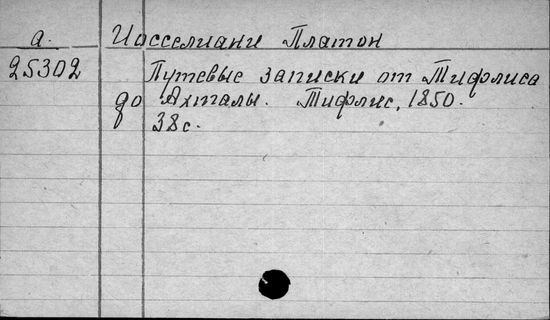 а. Иосселиани Платон
25302 Путевые записки от Тифлиса
до Ахталы. Тифлис, 1850.
38с.